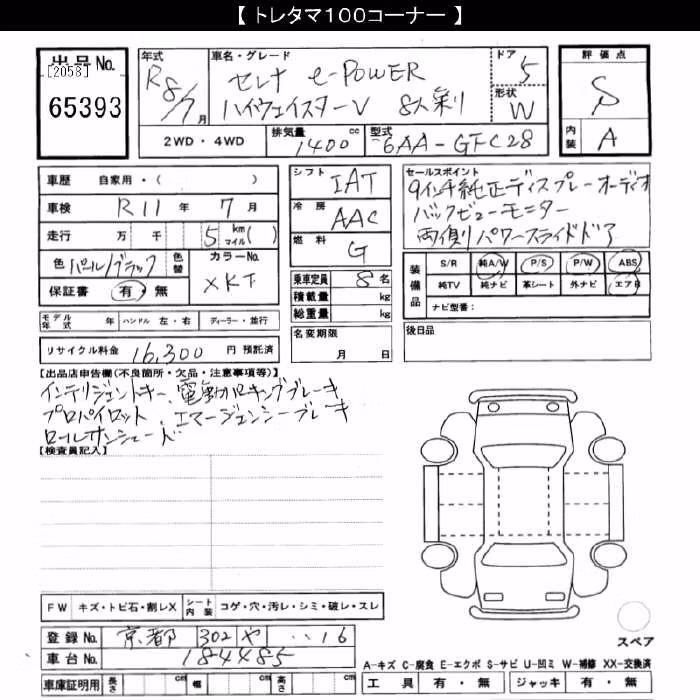 【 トレタマ100コーナー 】
出品No.
[2058]
65393
年式
R8/7月
車名・グレード
セレナ e-POWER
ハイウェイスターV 8人乗り
ドア
5
形状
W
2WD・4WD
排気量
1400cc
型式
6AA-GFC28
評価点
S
内装
A
車歴 自家用・( )
車検 R11年 7月
走行 万 千 5 kmマイル( )
色 パール/ブラック 色替
カラーNo.
XKJ
保証書 有・無
モデル年式 年 ハンドル 左・右 ディーラー・並行
リサイクル料金 16,300 円 預託済
シフト
IAT
冷房
AAC
燃料
G
乗車定員 8名
積載量 kg
総重量 kg
名変期限
月 日
セールスポイント
9インチ純正ディスプレーオーディオ
バックビューモニター
両側パワースライドドア
装備品
S/R 純A/W P/S P/W ABS
純TV 純ナビ 革シート 外ナビ エアB
ナビ型番:
後日品
【出品店申告欄(不良箇所・欠品・注意事項等)】
インテリジェントキー、電動パーキングブレーキ
プロパイロット、エマージェンシーブレーキ
ロールサンシェード
【検査員記入】
FW キズ・トビ石・割レX シート内装 コゲ・穴・汚レ・シミ・破レ・スレ
登録No. 京都 302 や ‥16
車台No. 184485
車庫証明用 長さ cm 幅 cm 高さ cm
スペア
A-キズ C-腐食 E-エクボ S-サビ U-凹ミ W-補修 XX-交換済
工具 有・無 ジャッキ 有・無